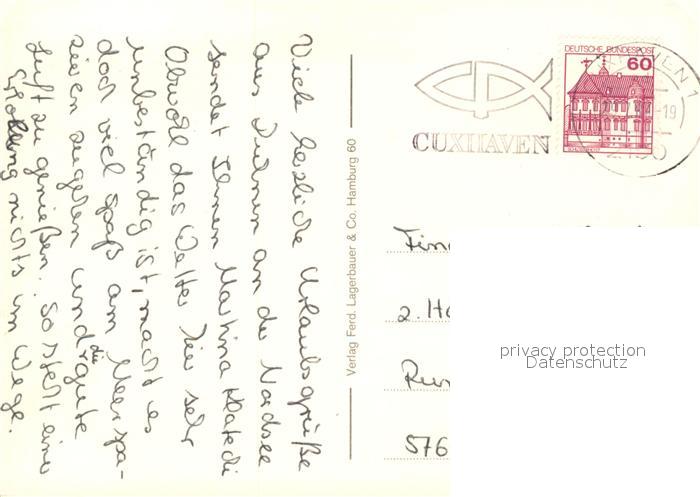 Viele herzliche Urlaubsgrüße
aus Duhnen an der Nordsee
sendet Ihnen Martina
Obwohl das Wetter hier sehr
unbeständig ist, macht es
doch viel Spaß am Meer spa-
zieren zu gehen und die gute
Luft zu genießen. So steht einer
Erholung nichts im Wege.
Verlag Ferd. Lagerbauer & Co. Hamburg 60
CUXHAVEN
DEUTSCHE BUNDESPOST
60
-19
2. 
576
privacy protection
Datenschutz